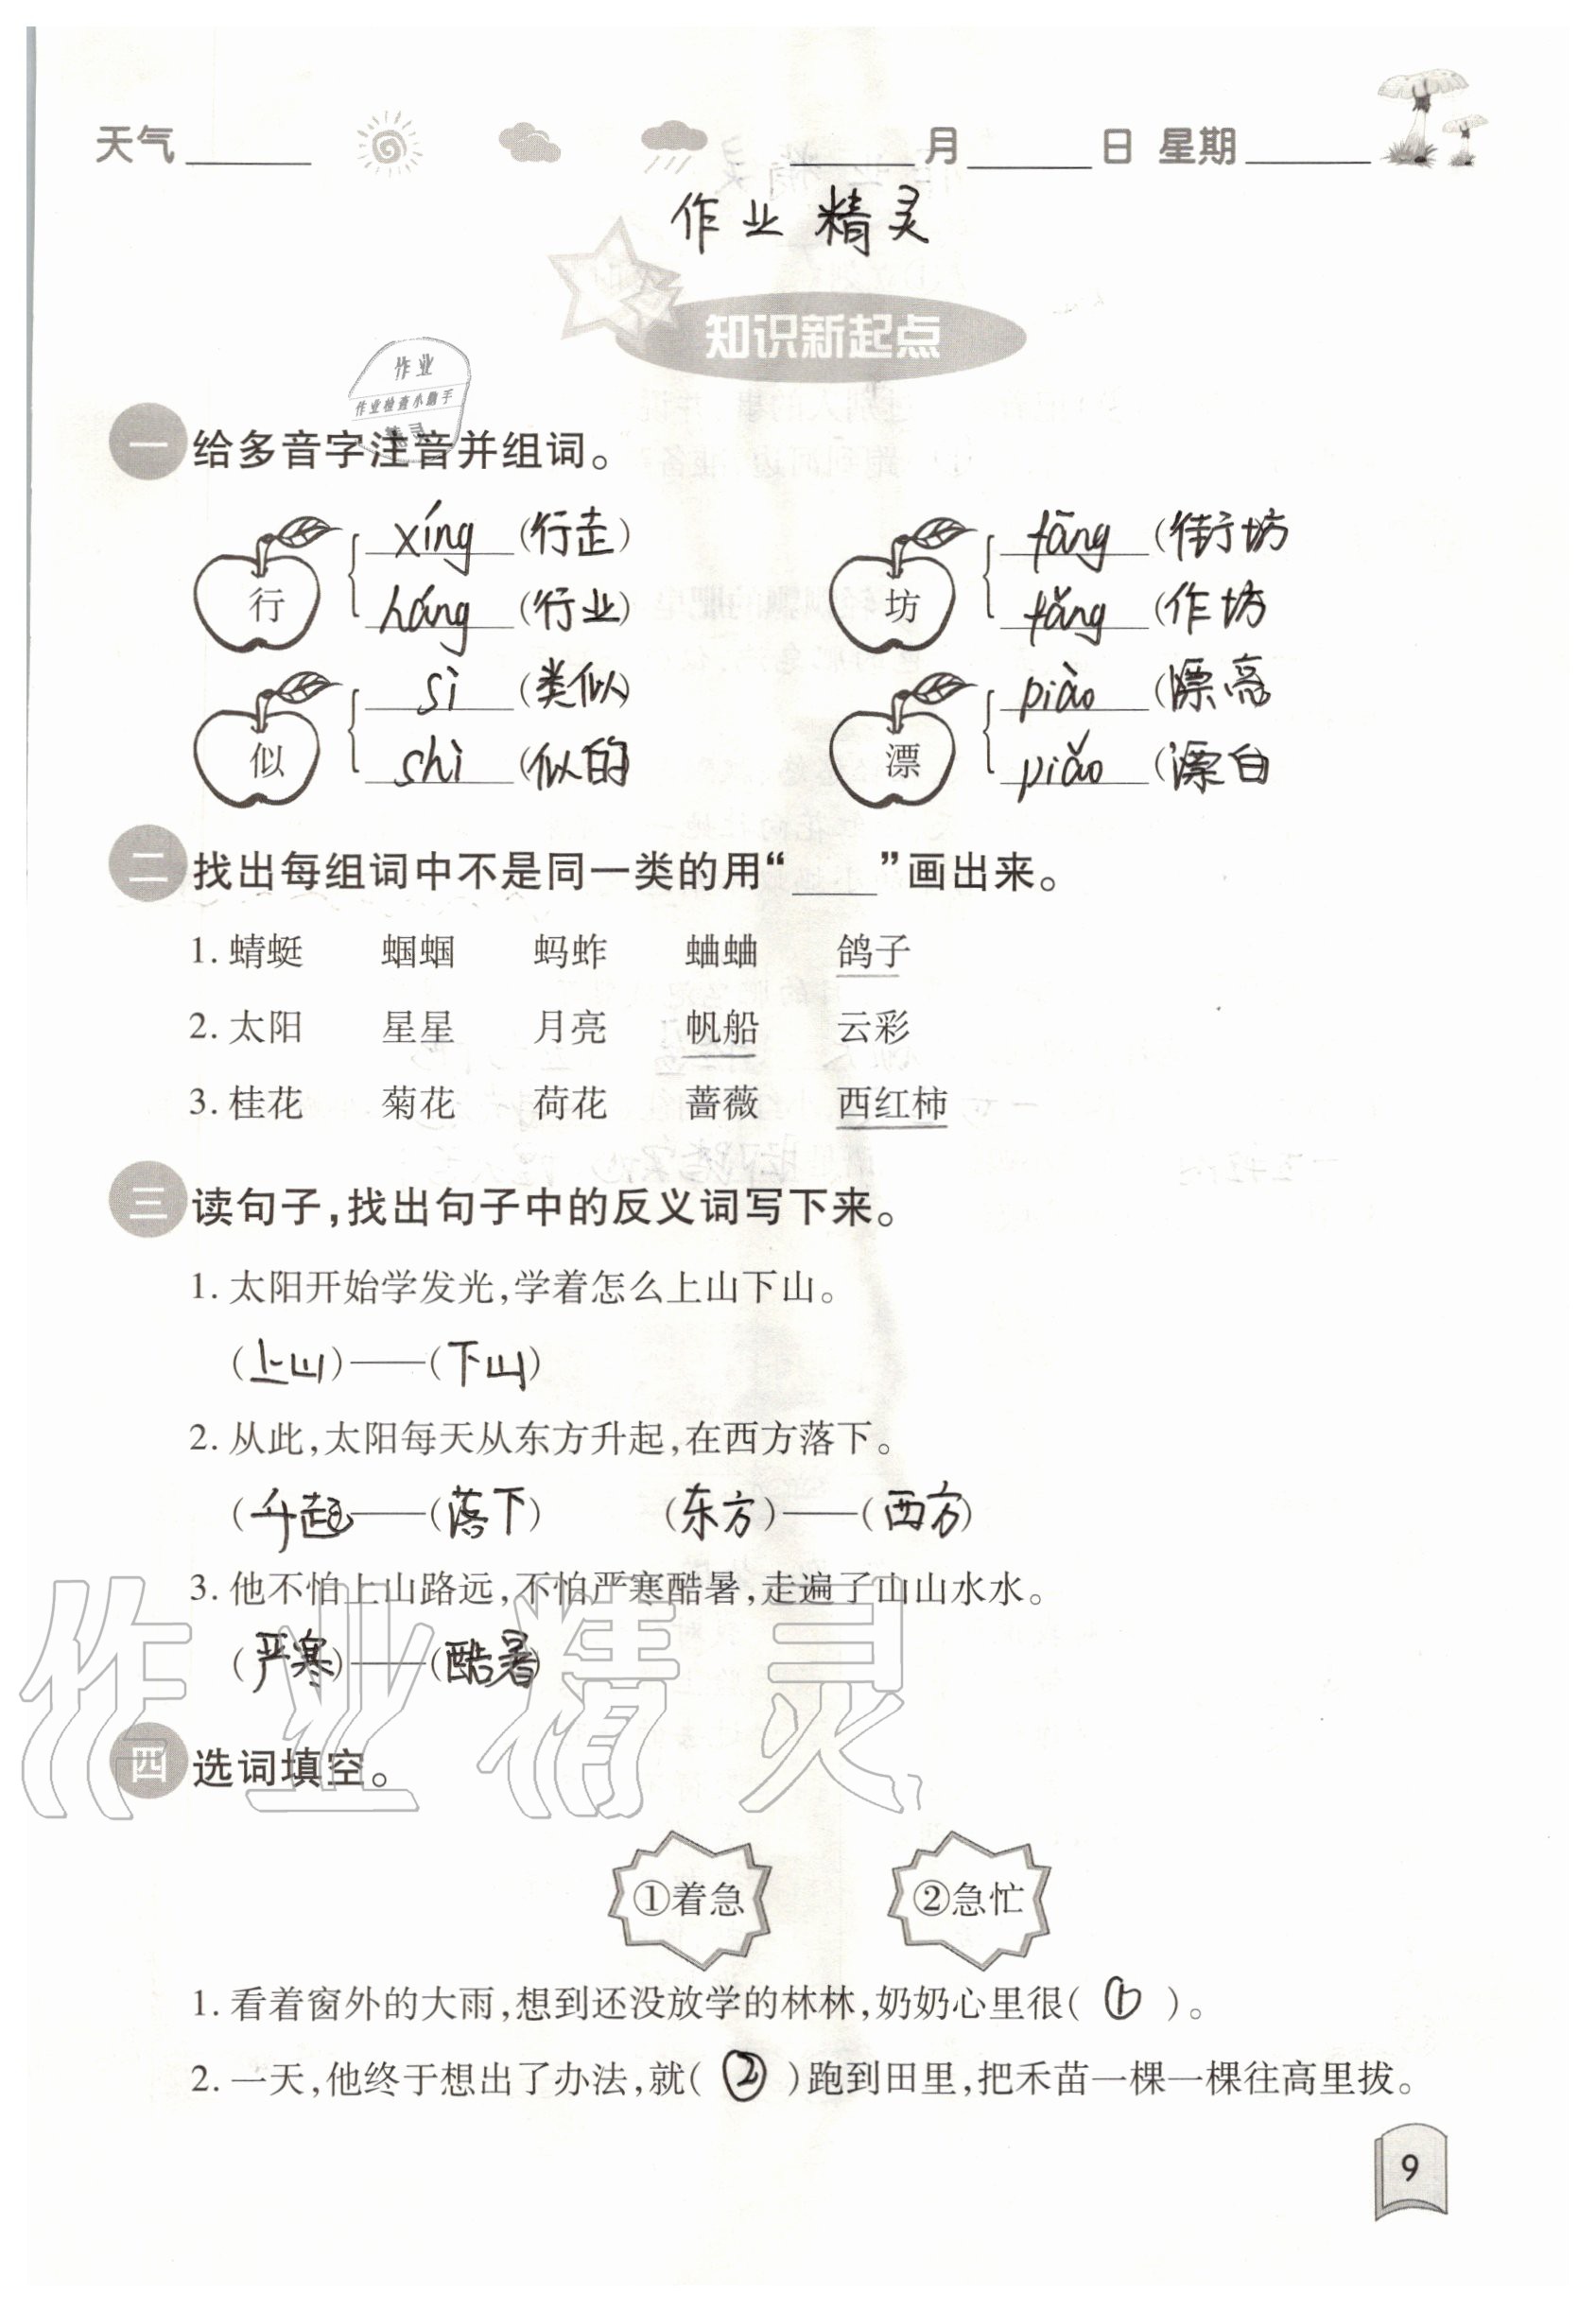 天气______ ______月______日 星期______
作业 精灵
知识新起点
作业
作业检查小助手
一 给多音字注音并组词。
行 xíng (行走) 坊 fāng (街坊
háng (行业) fǎng (作坊
似 sì (类似) 漂 piào (漂亮
shì (似的) piǎo (漂白
二 找出每组词中不是同一类的用“____”画出来。
1. 蜻蜓 蝈蝈 蚂蚱 蛐蛐 鸽子
2. 太阳 星星 月亮 帆船 云彩
3. 桂花 菊花 荷花 蔷薇 西红柿
三 读句子,找出句子中的反义词写下来。
1. 太阳开始学发光,学着怎么上山下山。
(上山)——(下山)
2. 从此,太阳每天从东方升起,在西方落下。
(升起——(落下) (东方)——(西方)
3. 他不怕上山路远,不怕严寒酷暑,走遍了山山水水。
(严寒)——(酷暑)
作业精灵
四 选词填空。
①着急 ②急忙
1. 看着窗外的大雨,想到还没放学的林林,奶奶心里很( ① )。
2. 一天,他终于想出了办法,就( ② )跑到田里,把禾苗一棵一棵往高里拔。
9